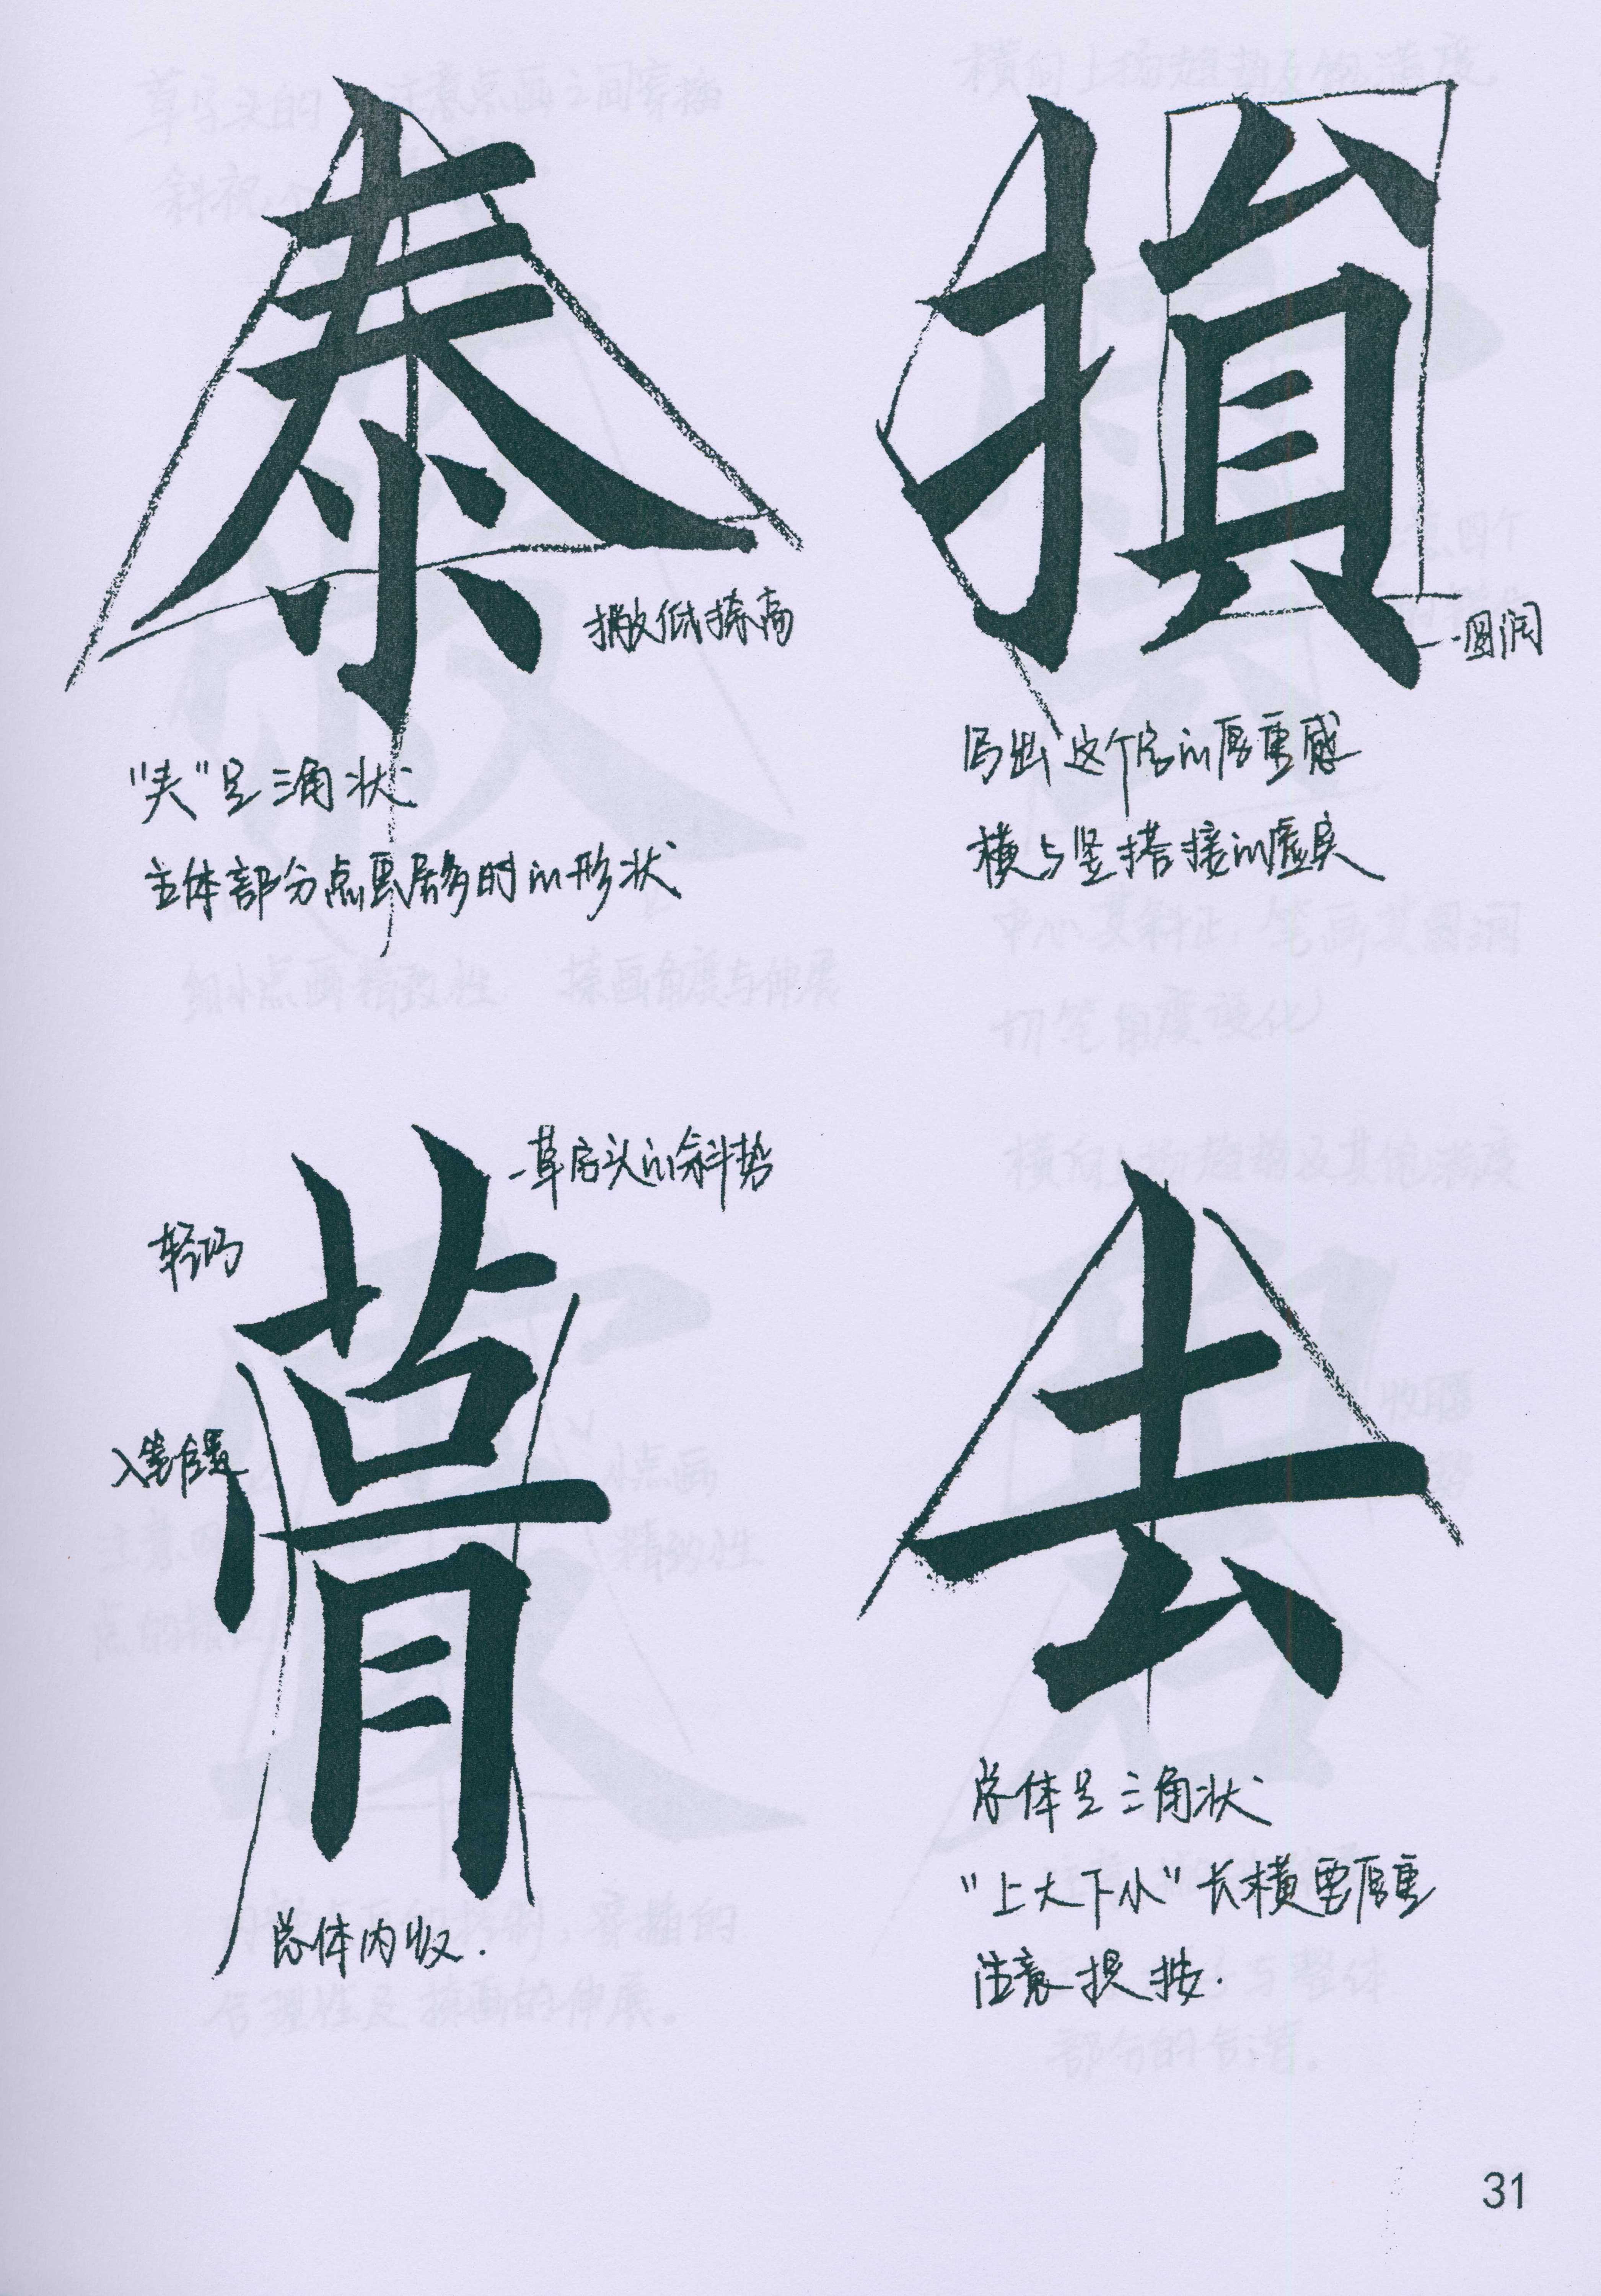 泰
撇低捺高
"夫"呈三角状
主体部分点画居多时的形状
損
圆润
写出这个字的厚重感
横与竖搭接的虚实
草字头的斜势
轻巧
入笔
总体内收.
去
总体呈三角状
"上大下小"长横要厚重
注意提按.
31